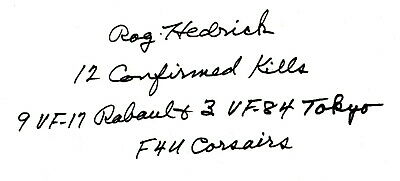 Rog Hedrick
12 Confirmed Kills
9 VF-17 Rabaul & 3 VF-84 Tokyo
F4U Corsairs